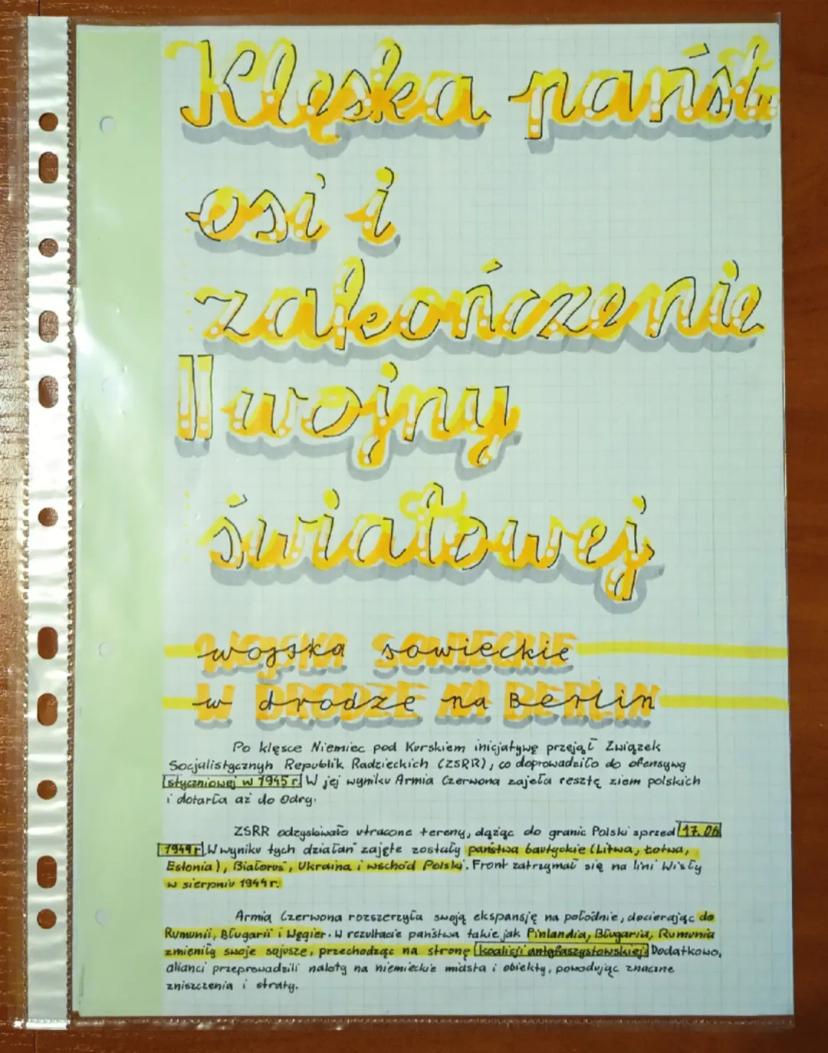 Klęska państw
osi i
zakończenie
II wojny
światowej
wojska sowieckie
w drodze na Berlin
Po klęsce Niemiec pod Kurskiem inicjatywę przejął Związek
Socjalistycznyh Republik Radzieckich (ZSRR), co doprowadziło do ofensywy
styczniowej w 1945 r. W jej wyniku Armia Czerwona zajęła resztę ziem polskich
i dotarła aż do Odry.
ZSRR odzyskiwało utracone tereny, dążąc do granic Polski sprzed 17.06
1941 r. W wyniku tych działań zajęte zostały państwa bałtyckie (Litwa, Łotwa,
Estonia), Białoruś, Ukraina i wschód Polski. Front zatrzymał się na lini Wisły
w sierpniu 1944r.
Armia Czerwona rozszerzyła swoją ekspansję na południe, docierając do
Rumunii, Bługarii i Węgier. W rezultacie państwa takie jak Finlandia, Bługaria, Rumunia
zmieniły swoje sojusze, przechodząc na stronę koalicji antyfaszystowskiej. Dodatkowo,
alianci przeprowadzili naloty na niemieckie miasta i obiekty, powodując znaczne
zniszczenia i straty.